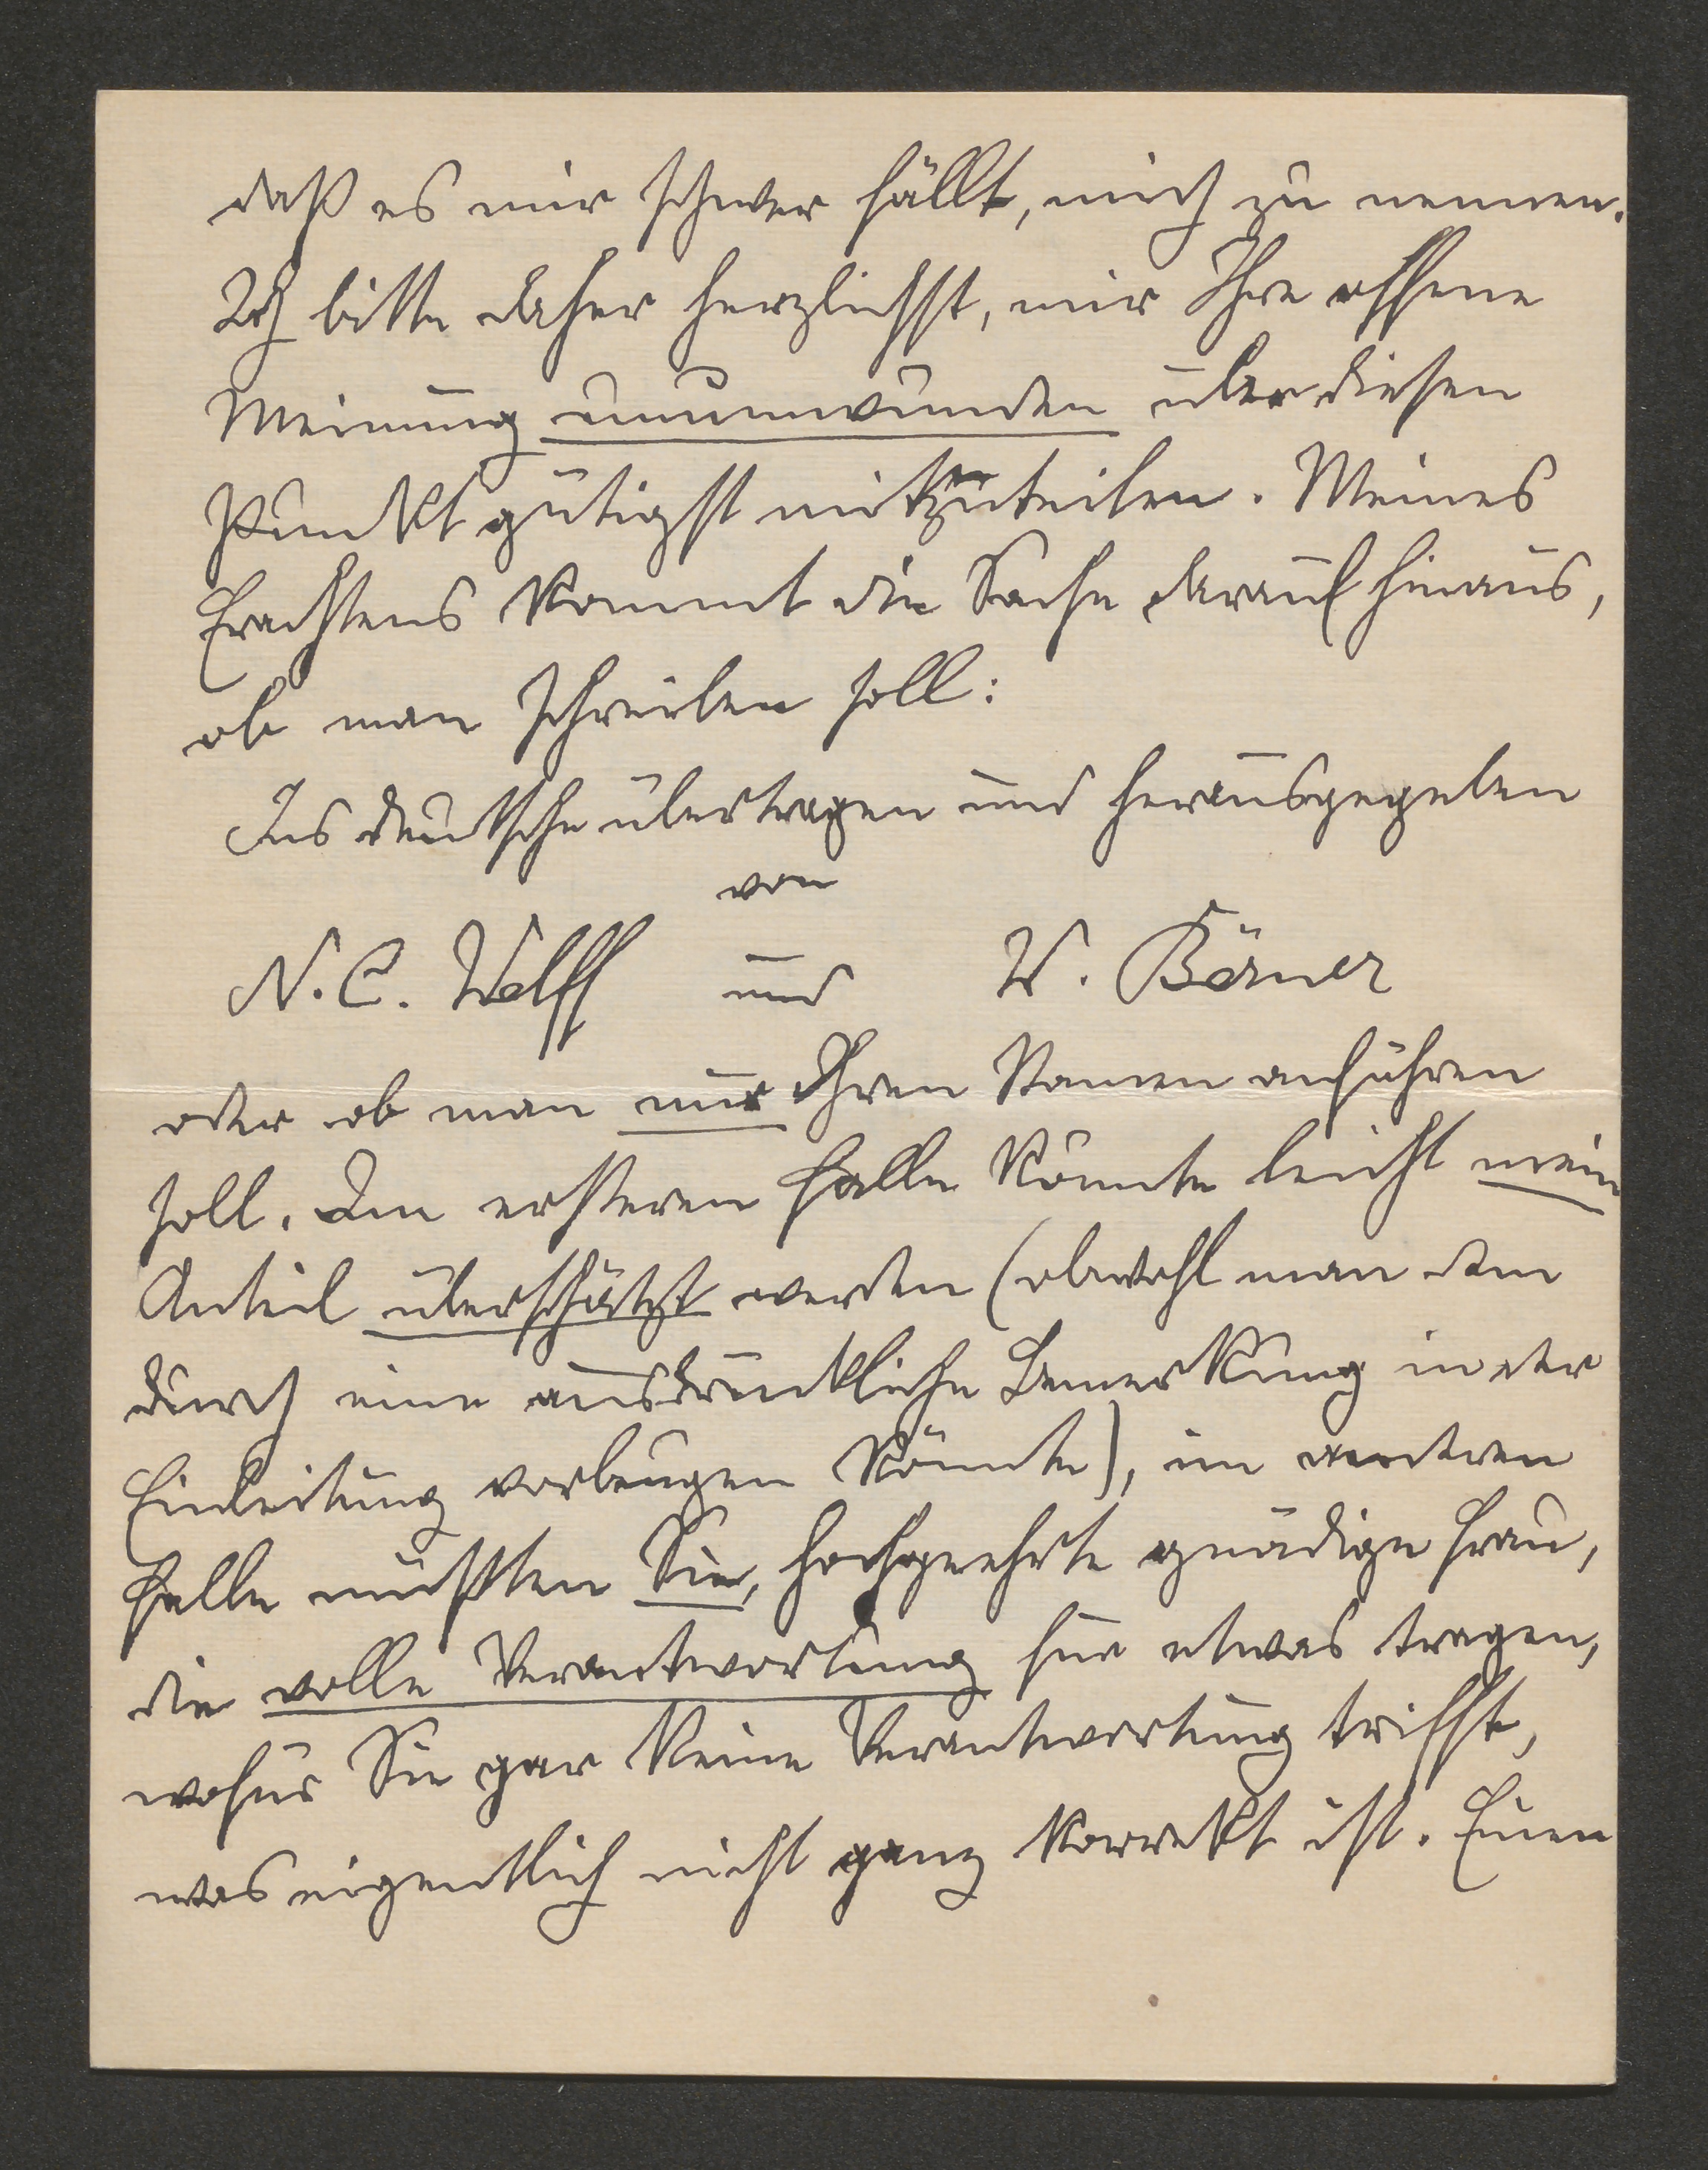 daß es mir schwer fällt, mich zu nennen.
Ich bitte daher herzlichst, mir Ihre offene
Meinung unumwunden über diesen
Punkt gütigst mitzuteilen. Meines
Erachtens kommt die Sache darauf hinaus,
ob man schreiben soll:
Ins deutsche übertragen und herausgegeben
von
N. C. Wolff und W. Börner
oder ob man nur Ihren Namen anführen
soll. Im ersteren Falle könnte leicht mein
Anteil überschätzt werden (obwohl man dem
durch eine ausdrückliche Bemerkung in der
Einleitung vorbeugen könnte), im anderen
Falle müßten Sie, hochgeehrte gnädige Frau,
die volle Verantwortung für etwas tragen,
wofür Sie gar keine Verantwortung trifft,
was eigentlich nicht ganz korrekt ist. Einen